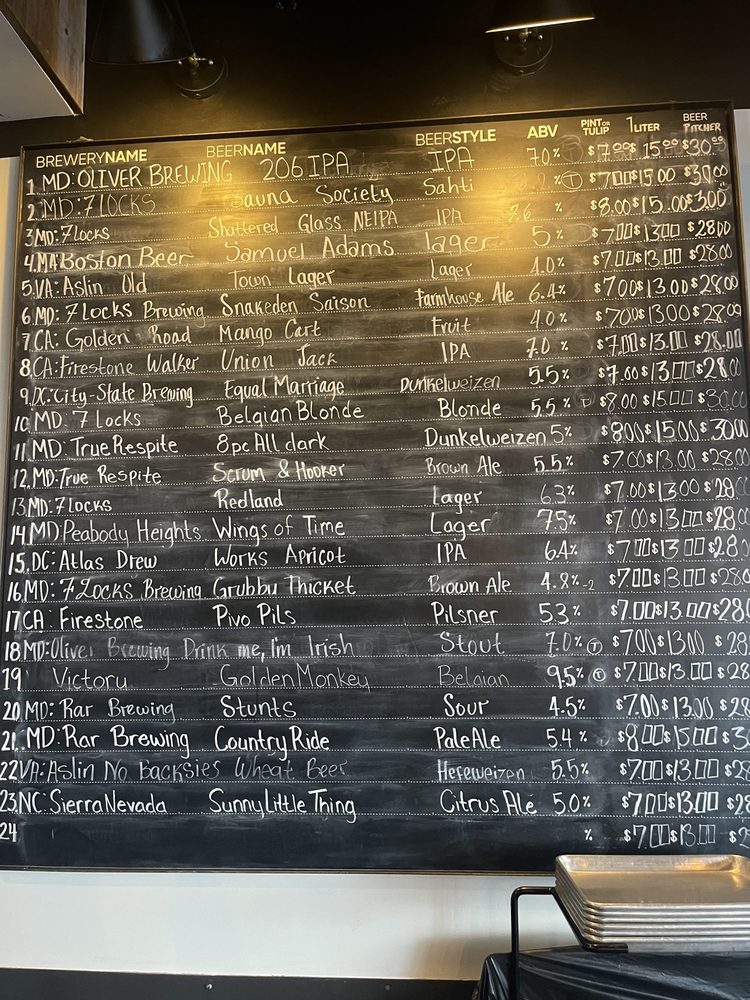 BREWERYNAME BEERNAME BEERSTYLE ABV PINT OR TULIP 1LITER BEER PITCHER
1 MD: OLIVER BREWING 206 IPA IPA 7.0% $7.00 $15.00 $30.00
2. MD: 7 LOCKS Sauna Society Sahti % T $7.00 $15.00 $30.00
3 MD: 7locks Shattered Glass NEIPA IPA 7.6 % $8.00 $15.00 $30.00
4. MA Boston Beer Samuel Adams lager 5% $7.00 $13.00 $28.00
5. VA: Aslin Old Town Lager Lager 4.0% $7.00 $13.00 $28.00
6. MD: 7locks Brewing Snakeden Saison Farmhouse Ale 6.4% $7.00 $13.00 $28.00
7 CA: Golden Road Mango Cart Fruit 4.0% $7.00 $13.00 $28.00
8. CA: Firestone Walker Union Jack IPA 7.0 % $7.00 $13.00 $28.00
9. DC: City-State Brewing Equal Marriage Dunkelweizen 5.5% $7.00 $13.00 $28.00
10. MD 7 Locks Belgian Blonde Blonde 5.5 % $8.00 $15.00 $30.00
11. MD: True Respite 8pc All dark Dunkelweizen 5% $8.00 $15.00 $30.00
12. MD: True Respite Scrum & Hooker Brown Ale 5.5% $7.00 $13.00 $28.00
13. MD: 7locks Redland Lager 6.3% $7.00 $13.00 $28.00
14. MD: Peabody Heights Wings of Time Lager 7.5% $7.00 $13.00 $28.0
15. DC: Atlas Drew Works Apricot IPA 6.4% $7.00 $13.00 $28.0
16. MD: 7 Locks Brewing Grubbu Thicket Brown Ale 4.8% $7.00 $13.00 $28.0
17 CA: Firestone Pivo Pils Pilsner 5.3 % $7.00 $13.00 $28
18 MD: Oliver Brewing Drink me, i'm Irish Stout 7.0% T $7.00 $13.00 $28
19 Victory Golden Monkey Belgian 9.5% T $7.00 $13.00 $28
20 MD: Rar Brewing Stunts Sour 4.5% $7.00 $13.00 $28
21. MD: Rar Brewing Country Ride Pale Ale 5.4 % $8.00 $15.00 $3
22 VA: Aslin No Backsies Wheat Beer Hefeweizen 5.5% $7.00 $13.00 $28
23 NC: Sierra Nevada Sunny Little Thing Citrus Ale 5.0% $7.00 $13.00 $28
24 % $7.00 $13.00 $2